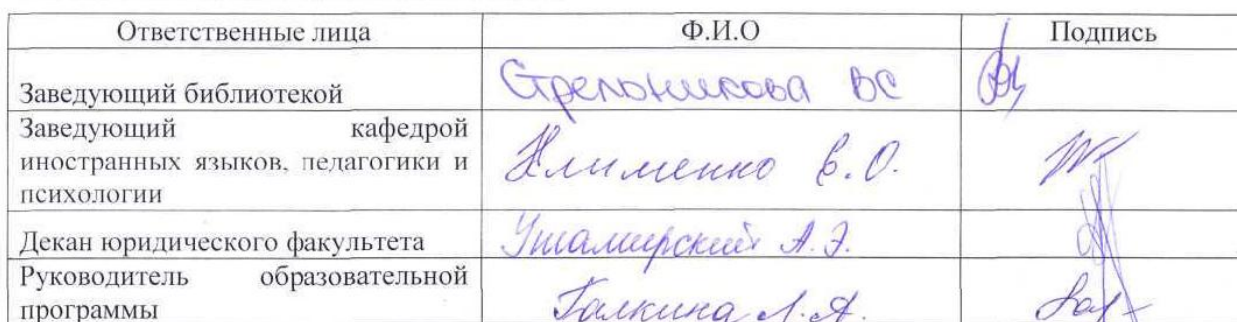 Ответственные лица Ф.И.О Подпись
Заведующий библиотекой Стрельникова ВС
Заведующий кафедрой
иностранных языков, педагогики и
психологии
Клименко Е.О.
Декан юридического факультета А.Э.
Руководитель образовательной
программы
Галкина Л.А.